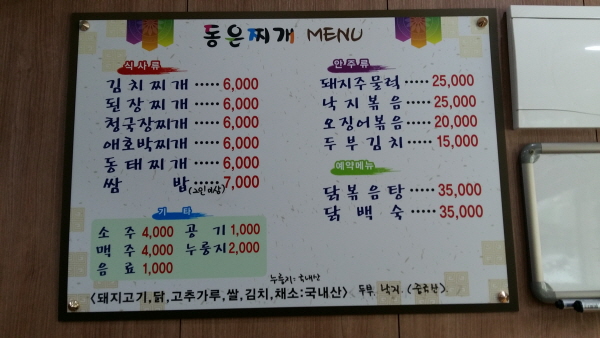 동은찌개 MENU
식사류
김치찌개 ····· 6,000
된장찌개 ····· 6,000
청국장찌개 ···· 6,000
애호박찌개 ···· 6,000
동태찌개 ····· 6,000
쌈 밥 ····· 7,000
(2인이상)
기 타
소 주 4,000 공 기 1,000
맥 주 4,000 누룽지 2,000
음 료 1,000
안주류
돼지주물럭 ····· 25,000
낙지볶음 ····· 25,000
오징어볶음 ····· 20,000
두부김치 ····· 15,000
예약메뉴
닭볶음탕 ····· 35,000
닭 백 숙 ····· 35,000
누룽지: 국내산
<돼지고기,닭,고추가루,쌀,김치,채소:국내산> 두부, 낙지. (중국산).